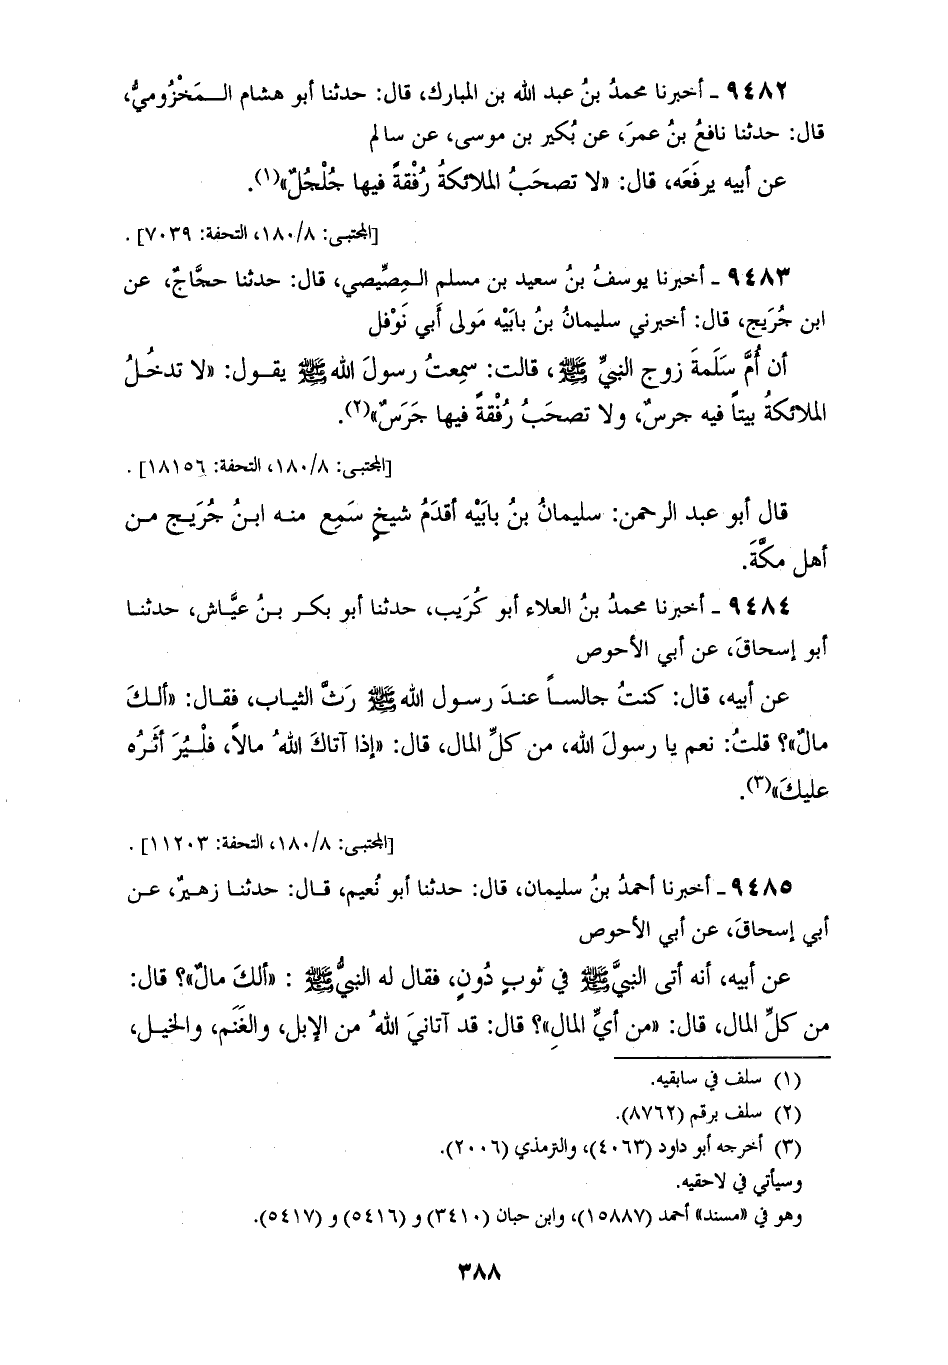 ٩٤٨٢ - أخبرنا محمدُ بنُ عبد الله بن المبارك، قال: حدثنا أبو هشام المَخْزُوميُّ،
قال: حدثنا نافعُ بنُ عمرَ، عن بُكير بن موسى، عن سالم
عن أبيه يرفَعَه، قال: «لا تصحَبُ الملائكةُ رُفْقةً فيها جُلْجُلٌ»(١).
[المجتبى: ١٨٠/٨، التحفة: ٧٠٣٩] .
٩٤٨٣ - أخبرنا يوسفُ بنُ سعيد بن مسلم المِصِّيصي، قال: حدثنا حجَّاجٌ، عن
ابن جُرَيج، قال: أخبرني سليمانُ بنُ بابَيْه مَولى أَبي نَوْفل
أن أُمَّ سَلَمةَ زوج النبيِّ ﷺ، قالت: سمِعتُ رسولَ الله ﷺ يقول: «لا تدخُلُ
الملائكةُ بيتاً فيه جرسٌ، ولا تصحَبُ رُفْقةً فيها جَرَسٌ»(٢).
[المجتبى: ١٨٠/٨، التحفة: ١٨١٥٦] .
قال أبو عبد الرحمن: سليمانُ بنُ بابَيْه أقدَمُ شيخٍ سَمِع منه ابنُ جُرَيج من
أهل مكَّةَ.
٩٤٨٤ - أخبرنا محمدُ بنُ العلاء أبو كُرَيب، حدثنا أبو بكر بنُ عيَّاش، حدثنا
أبو إسحاقَ، عن أبي الأحوص
عن أبيه، قال: كنتُ جالساً عندَ رسول الله ﷺ رَثَّ الثياب، فقال: «ألكَ
مالٌ»؟ قلتُ: نعم يا رسولَ الله، من كلِّ المال، قال: «إذا آتاكَ اللهُ مالاً، فلْيُرَ أثَرُه
عليكَ»(٣).
[المجتبى: ١٨٠/٨، التحفة: ١١٢٠٣] .
٩٤٨٥ - أخبرنا أحمدُ بنُ سليمان، قال: حدثنا أبو نُعيم، قال: حدثنا زهيرٌ، عن
أبي إسحاقَ، عن أبي الأحوص
عن أبيه، أنه أتى النبيَّ ﷺ في ثوبٍ دُونٍ، فقال له النبيُّ ﷺ : «ألكَ مالٌ»؟ قال:
من كلِّ المال، قال: «من أيِّ المالِ»؟ قال: قد آتانيَ اللهُ من الإبل، والغَنَم، والخيل،
(١) سلف في سابقيه.
(٢) سلف برقم (٨٧٦٢).
(٣) أخرجه أبو داود (٤٠٦٣)، والترمذي (٢٠٠٦).
وسيأتي في لاحقيه.
وهو في «مسند» أحمد (١٥٨٨٧)، وابن حبان (٣٤١٠) و (٥٤١٦) و (٥٤١٧).
٣٨٨